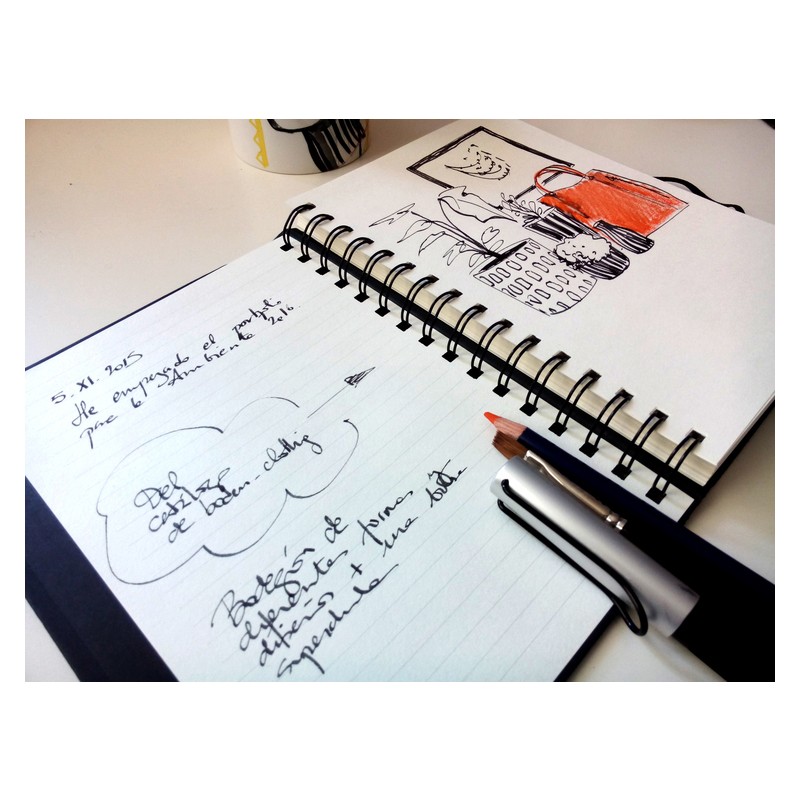 5. XI. 2015
He empezado el
para la Ambiente 2016.
Del
catálogo
de boden-clothing
Bodegón de
diferentes formas
+ una
superchula